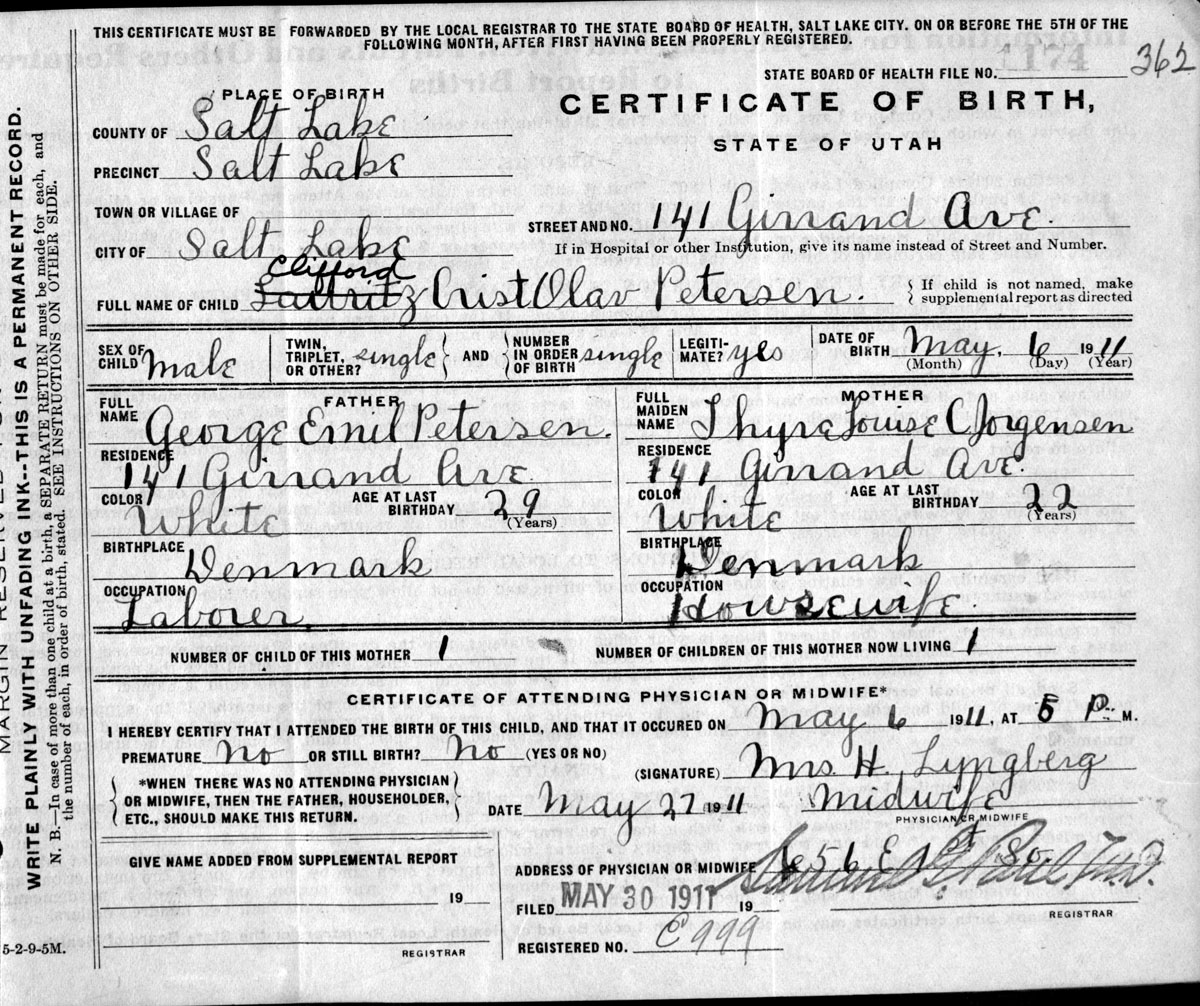 THIS CERTIFICATE MUST BE FORWARDED BY THE LOCAL REGISTRAR TO THE STATE BOARD OF HEALTH, SALT LAKE CITY. ON OR BEFORE THE 5TH OF THE
FOLLOWING MONTH, AFTER FIRST HAVING BEEN PROPERLY REGISTERED.
STATE BOARD OF HEALTH FILE NO. 362
PLACE OF BIRTH
CERTIFICATE OF BIRTH,
STATE OF UTAH
COUNTY OF Salt Lake
PRECINCT Salt Lake
TOWN OR VILLAGE OF
STREET AND NO. 141 Girrand Ave.
CITY OF Salt Lake
If in Hospital or other Institution, give its name instead of Street and Number.
Clifford
FULL NAME OF CHILD Crist Olav Petersen.
If child is not named, make
supplemental report as directed
SEX OF CHILD male
TWIN, TRIPLET, OR OTHER? single AND NUMBER IN ORDER OF BIRTH single
LEGITIMATE? yes
DATE OF BIRTH May, 6 1911
(Month) (Day) (Year)
FATHER
FULL NAME George Emil Petersen.
RESIDENCE 141 Girrand Ave.
COLOR White AGE AT LAST BIRTHDAY 29
(Years)
BIRTHPLACE Denmark
OCCUPATION Laborer.
MOTHER
FULL MAIDEN NAME Thyra Louise C Jorgensen
RESIDENCE 141 Girrand Ave.
COLOR White AGE AT LAST BIRTHDAY 22
(Years)
BIRTHPLACE Denmark
OCCUPATION Howsewife.
NUMBER OF CHILD OF THIS MOTHER 1
NUMBER OF CHILDREN OF THIS MOTHER NOW LIVING 1
CERTIFICATE OF ATTENDING PHYSICIAN OR MIDWIFE*
I HEREBY CERTIFY THAT I ATTENDED THE BIRTH OF THIS CHILD, AND THAT IT OCCURED ON May 6 1911, AT 5 P. M.
PREMATURE No OR STILL BIRTH? No (YES OR NO)
(SIGNATURE) Mrs. H. Lyngberg
*WHEN THERE WAS NO ATTENDING PHYSICIAN
OR MIDWIFE, THEN THE FATHER, HOUSEHOLDER,
ETC., SHOULD MAKE THIS RETURN.
DATE May 27 1911 Midwife
PHYSICIAN OR MIDWIFE
GIVE NAME ADDED FROM SUPPLEMENTAL REPORT
19
REGISTRAR
ADDRESS OF PHYSICIAN OR MIDWIFE 656 E 1st So
FILED MAY 30 1911 19
REGISTRAR
REGISTERED NO. C 999
5-2-9-5M.
WRITE PLAINLY WITH UNFADING INK--THIS IS A PERMANENT RECORD.
N. B.—In case of more than one child at a birth, a SEPARATE RETURN must be made for each, and
the number of each, in order of birth, stated. SEE INSTRUCTIONS ON OTHER SIDE.